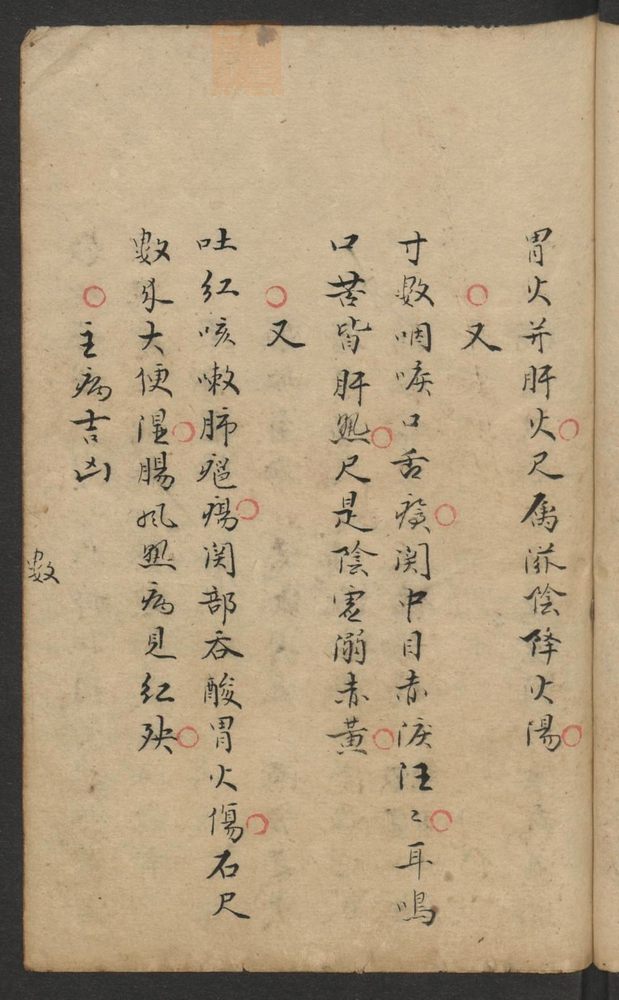 胃火并肝火○尺属滋陰降火湯○
○又
寸数咽喉口舌瘡○関中目赤淚汪〻○耳鳴
口苦皆肝熱○尺是陰虚溺赤黄○
○又
吐紅咳嗽肺瘟瘍○関部吞酸胃火傷○右尺
数来大便湿○腸風熱病見紅殃○
○主病吉凶
数